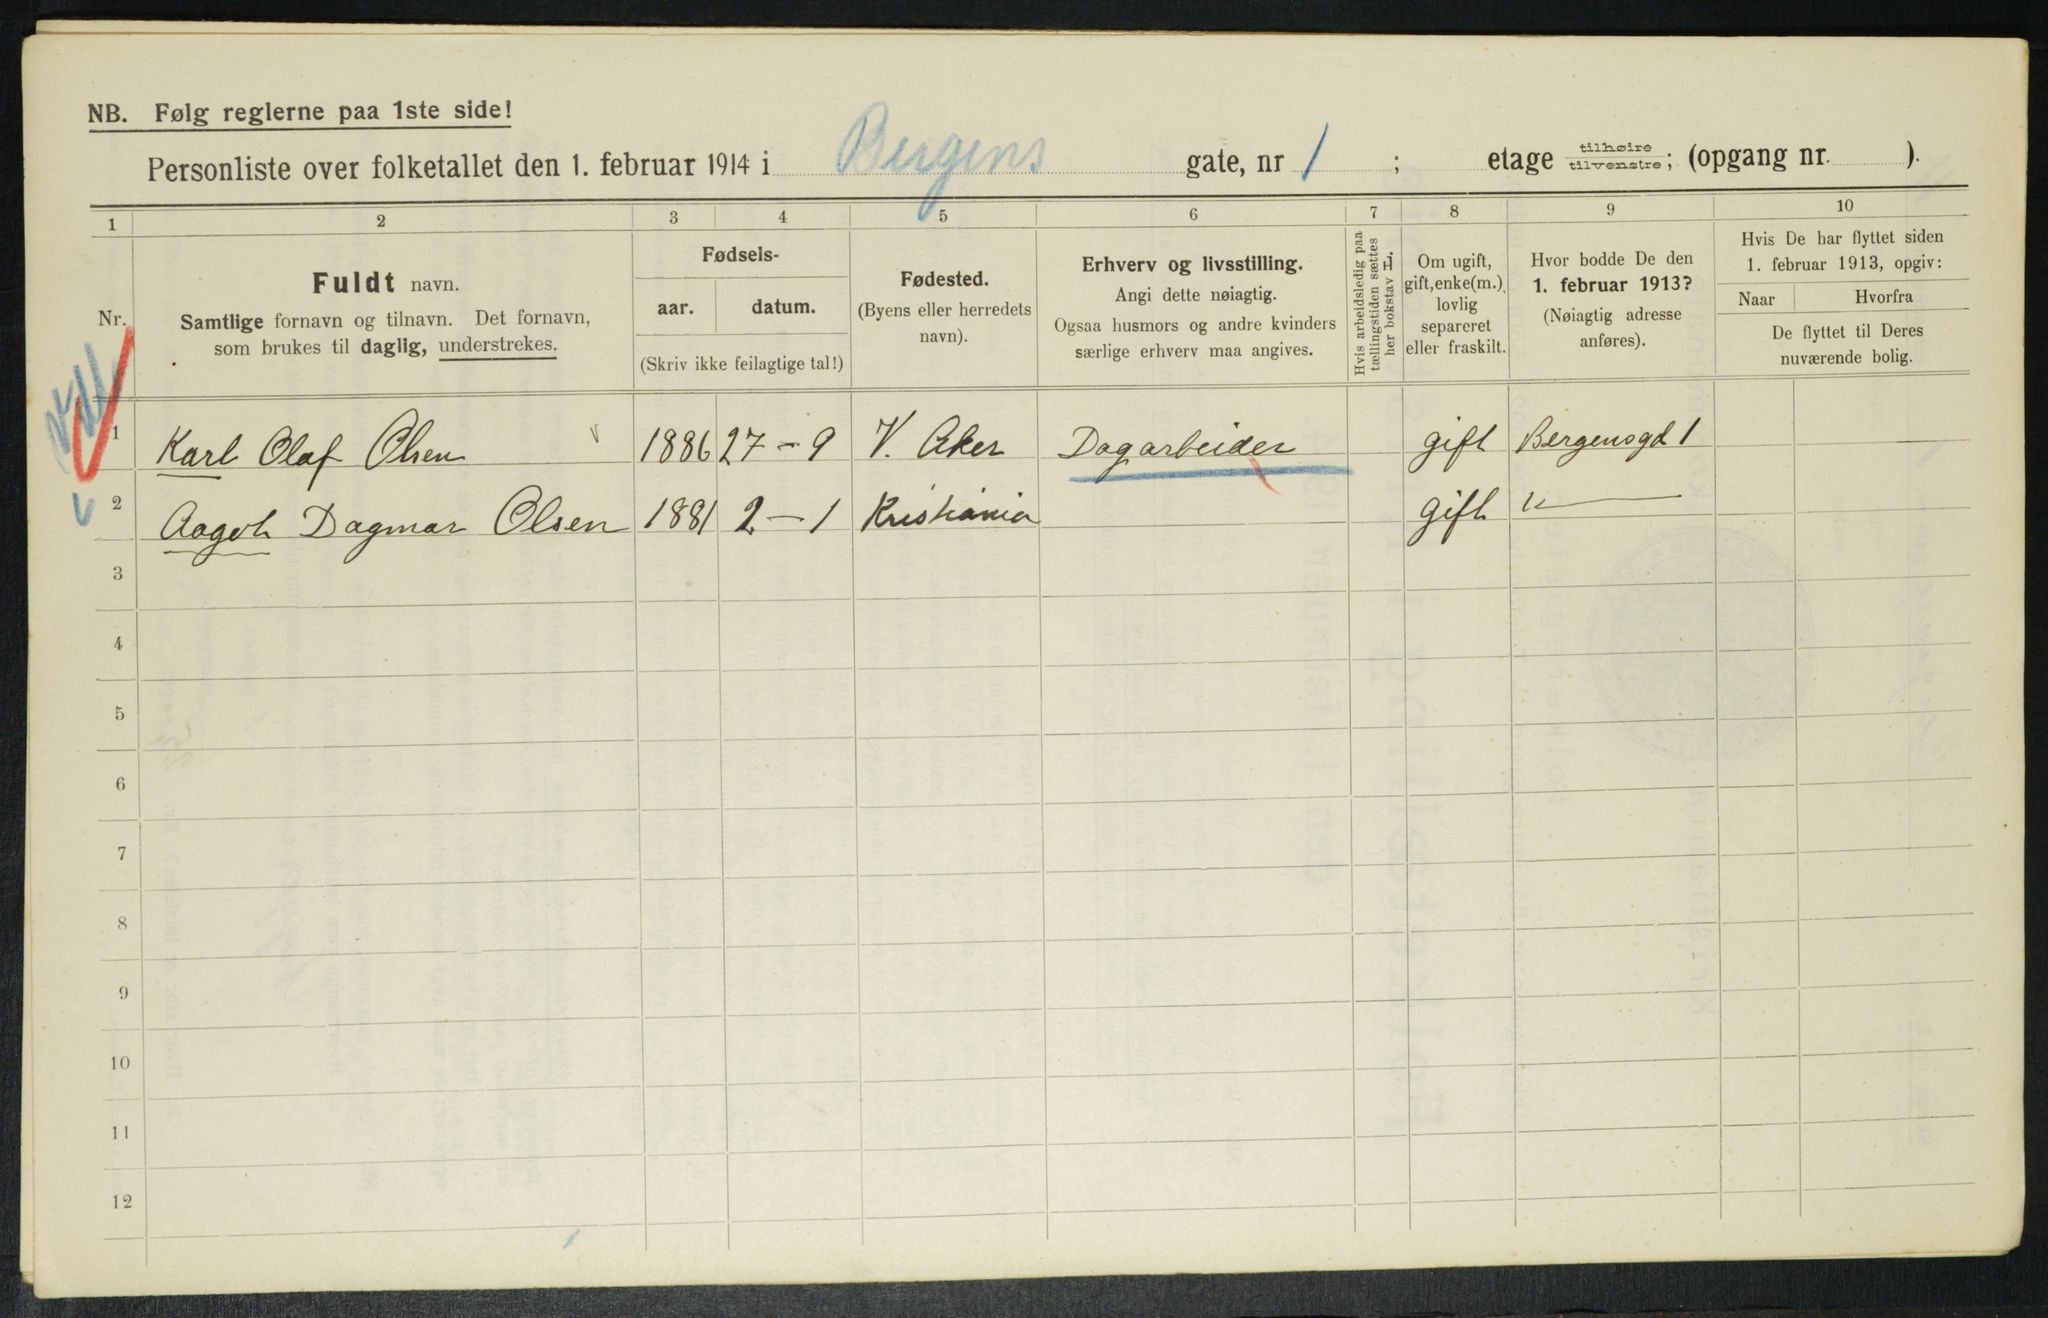 NB. Følg reglerne paa 1ste side!
Personliste over folketallet den 1. februar 1914 i Bergens gate, nr 1 ; etage tilhøire tilvenstre; (opgang nr. ).
1 2 3 4 5 6 7 8 9 10
Nr.
Fuldt navn.
Samtlige fornavn og tilnavn. Det fornavn,
som brukes til daglig, understrekes.
Fødsels-
aar. datum.
(Skriv ikke feilagtige tal!)
Fødested.
(Byens eller herredets
navn).
Erhverv og livsstilling.
Angi dette nøiagtig.
Ogsaa husmors og andre kvinders
særlige erhverv maa angives.
Hvis arbeidsledig paa
tællingstiden sættes
her bokstav L.
Om ugift,
gift, enke(m.),
lovlig
separeret
eller fraskilt.
Hvor bodde De den
1. februar 1913?
(Nøiagtig adresse
anføres).
Hvis De har flyttet siden
1. februar 1913, opgiv:
Naar Hvorfra
De flyttet til Deres
nuværende bolig.
1 Karl Olaf Olsen 1886 27-9 V. Aker Dagarbeider gift Bergensgd 1
2 Aagot Dagmar Olsen 1881 2-1 Kristiania gift "
3
4
5
6
7
8
9
10
11
12